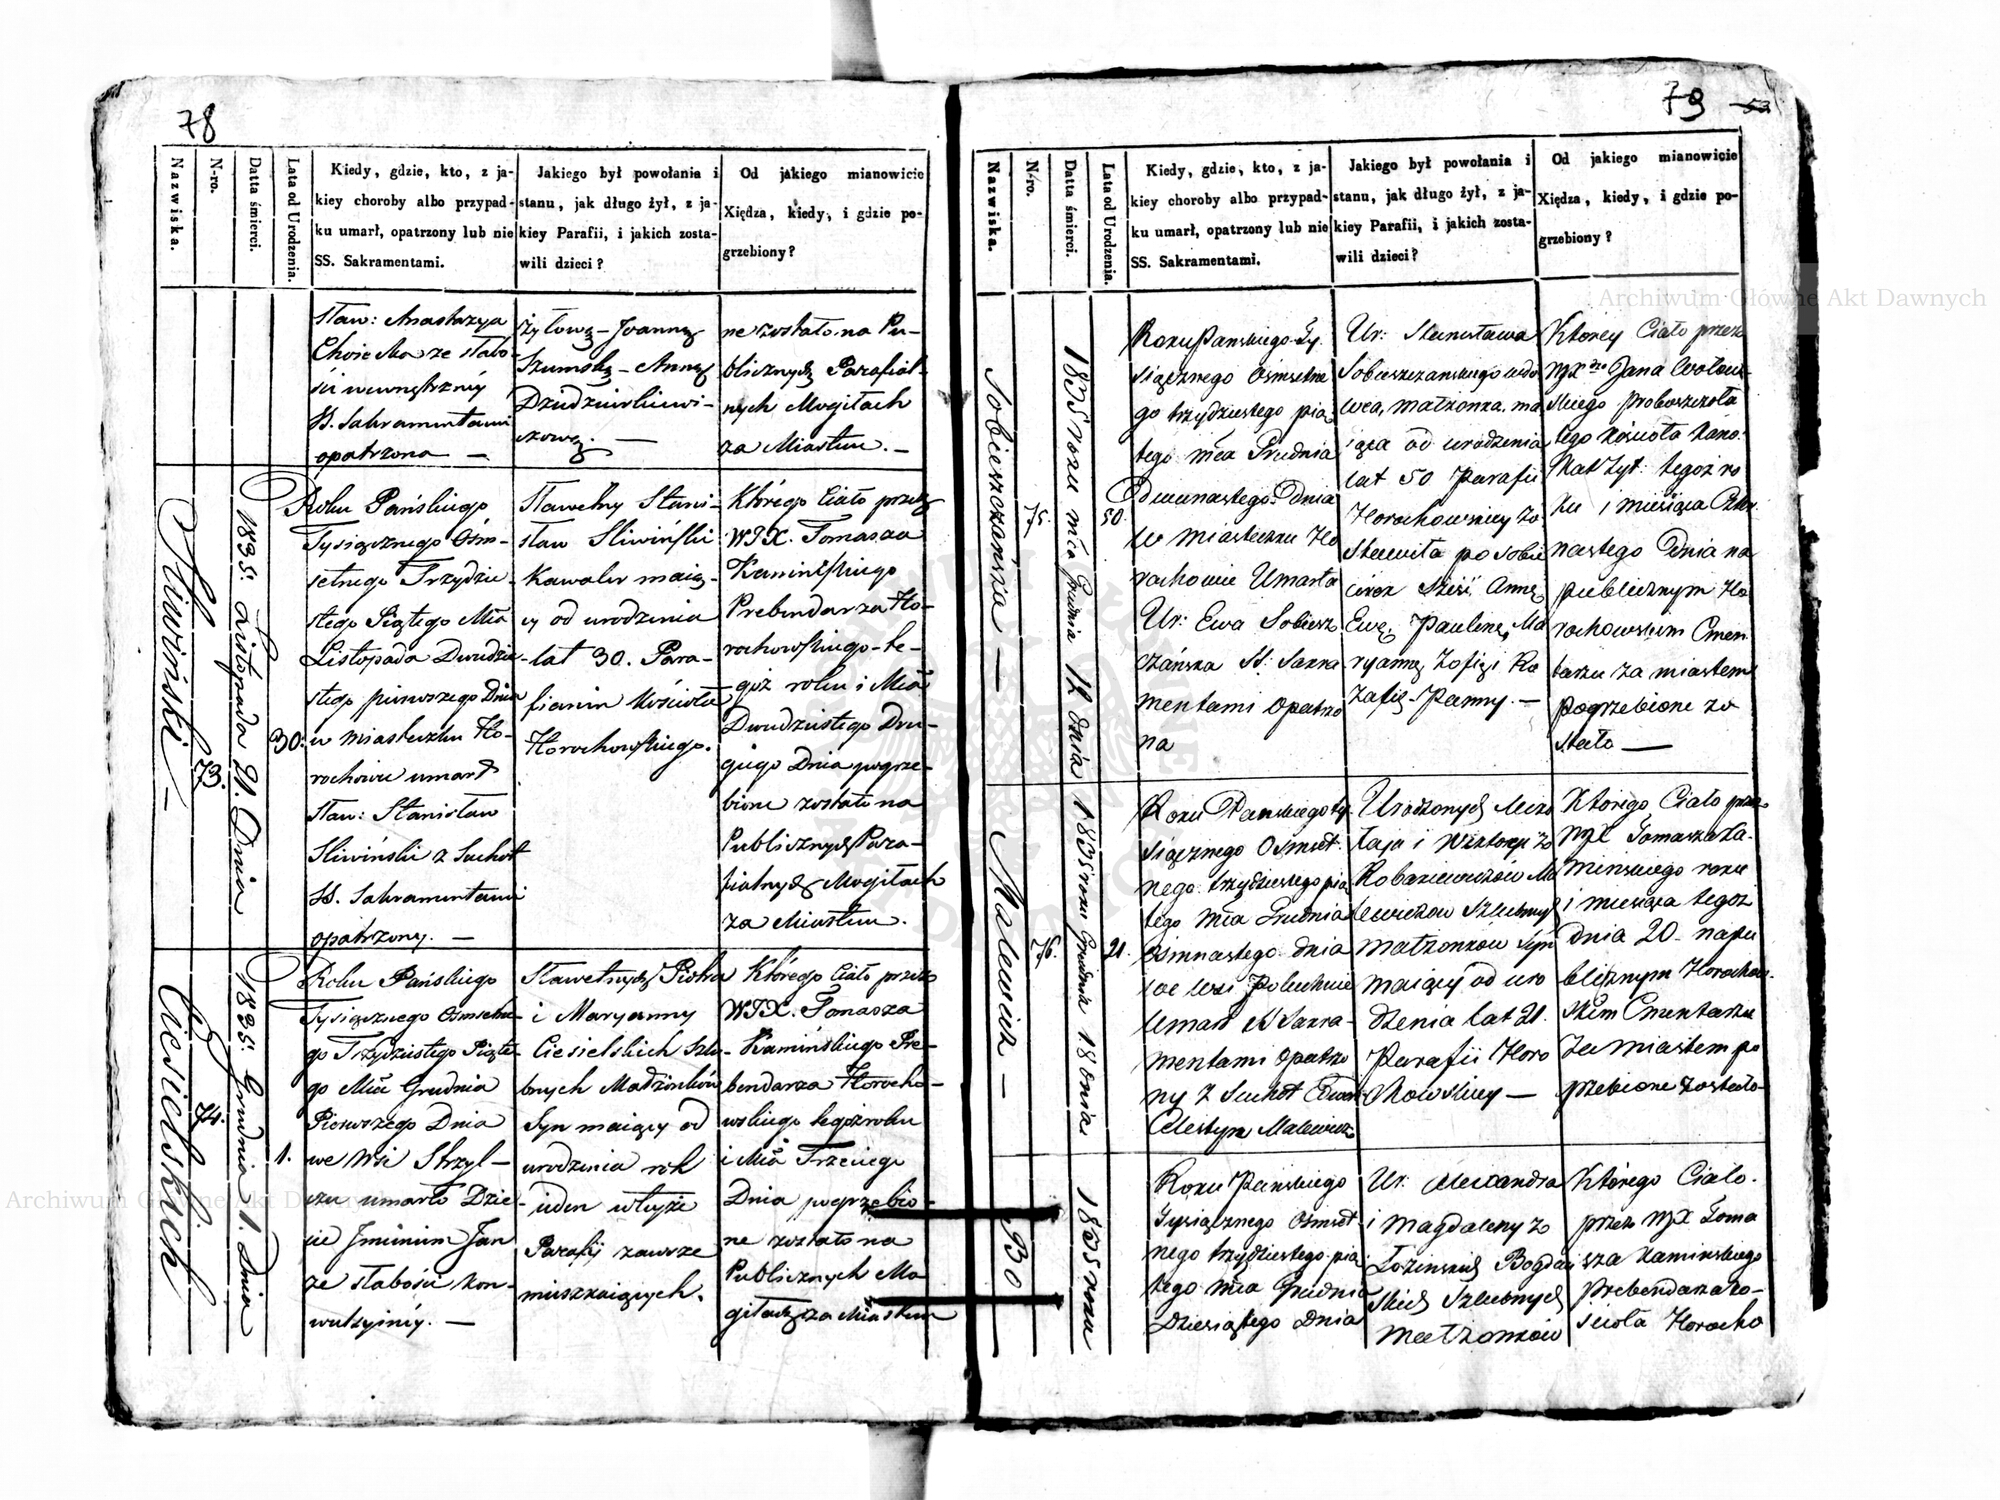 78
Nazwiska.
N-ro.
Datta śmierci.
Lata od Urodzenia.
Kiedy, gdzie, kto, z ja-
kiey choroby albo przypad-
ku umarł, opatrzony lub nie
SS. Sakramentami.
Jakiego był powołania i
stanu, jak długo żył, z ja-
kiey Parafii, i jakich zosta-
wili dzieci?
Od jakiego mianowicie
Xiędza, kiedy, i gdzie po-
grzebiony?
Sław: Anastazya
ze słabo-
ści wewnętrzney
SS. Sakramentami
opatrzona —
Joannę
Szumską - Annę
ne zostało na Pu-
blicznych Parafial-
nych Mogiłach
za Miastem. —
Sliwiński —
73.
1835: Listopada 21. Dnia
30.
Roku Pańskiego
Tysiącznego Ośm-
setnego Trzydzie-
stego Piątego Mca
Listopada Dwudzie-
stego pierwszego Dnia
w miasteczku Ho-
rochowie umarł
Sław: Stanisław
Sliwiński z Suchot
SS. Sakramentami
opatrzony. —
Sławetny Stani-
sław Sliwiński
Kawaler maią-
cy od urodzenia
lat 30. Para-
fianin Kościoła
Horochowskiego.
Którego Ciało przez
WJX. Tomasza
Kamińskiego
Prebendarza Ho-
rochowskiego - te-
goż roku i Mca
Dwudziestego Dru-
giego Dnia pogrze-
bione zostało na
Publicznych Para-
fialnych Mogiłach
za Miastem.
Ciesielskich
74.
1835: Grudnia 1. Dnia
1.
Roku Pańskiego
Tysiącznego Ośmsetne-
go Trzydziestego Piąte-
go Mca Grudnia
Pierwszego Dnia
we Wsi Strzyl-
czu umarło Dzie-
cie Jmieniem Jan
ze słabości kon-
wulsyiney. —
Sławetnych Piotra
i Maryanny
Ciesielskich Szlu-
bnych Małżonków
Syn maiący od
urodzenia rok
ieden w teyże
Parafij zawsze
mieszkaiących.
Którego Ciało przez
WJX. Tomasza
Kamińskiego Pre-
bendarza Horocho-
wskiego tegoż roku
i Mca Trzeciego
Dnia pogrzebio-
ne zostało na
Publicznych Mo-
giłach za Miastem
79
Nazwiska.
N-ro.
Datta śmierci.
Lata od Urodzenia.
Kiedy, gdzie, kto, z ja-
kiey choroby albo przypad-
ku umarł, opatrzony lub nie
SS. Sakramentami.
Jakiego był powołania i
stanu, jak długo żył, z ja-
kiey Parafii, i jakich zosta-
wili dzieci?
Od jakiego mianowicie
Xiędza, kiedy, i gdzie po-
grzebiony?
Sobieszczańska —
75.
1835 roku mca Grudnia 12 dnia
50.
Roku Pańskiego Ty-
siącznego Osmsetne
go trzydziestego pią
tego mca Grudnia
Dwunastego Dnia
w miasteczku Ho
rochowie Umarła
Ur: Ewa Sobiesz
czańska SS: Sakra
mentami opatrzo
na
Ur: Stanisława
Sobieszczanskiego
małżonka, ma
iąca od urodzenia
lat 50 Parafii
Horochowskiey zo
stawiła po sobie
córek sześć Annę
Ewę, Paulinę, Ma
ryannę Zofię i Ro
zalię - Panny. —
Ktorey Ciało przez
Jana
skiego Proboszcza
tego Kościoła Kano:
Kat: Żyt: tegoż ro
ku i miesiąca
nastego Dnia na
publicznym Ho
rochowskim Cmen
tarzu za miastem
pogrzebione zo
stało —
Malewicz —
76.
1835 roku Grudnia 18 dnia
21.
Roku Pańskiego ty-
siącznego Osmset-
nego trzydziestego pią
tego mca Grudnia
Osmnastego dnia
we wsi
Umarł SS Sakra-
mentami opatrzo
ny z Suchot
Celestyn Malewicz
Urodzonych
i Wiktoryi z
Ma
lewiczow Szlubnych
małżonków Syn
maiący od uro
dzenia lat 21.
Parafii Horo
chowskiey —
Którego Ciało przez
WJX Tomasza Ka-
mińskiego roku
i miesiąca tegoż
dnia 20 - na pu
blicznym Horochow-
skim Cmentarzu
za miastem po
grzebione zostało -
Bo
1835 roku
Roku Pańskiego
Tysiącznego Osmset
nego trzydziestego pią
tego mca Grudnia
Dziesiątego Dnia
Ur: Alexandra
i Magdaleny z
Łozinskich Bogdań
skich Szlubnych
Małżonków
Którego Ciało
przez WJX Toma
sza Kaminskiego
Prebendarza Ko-
ścioła Horocho
Archiwum Główne Akt Dawnych
Archiwum Główne Akt Dawnych